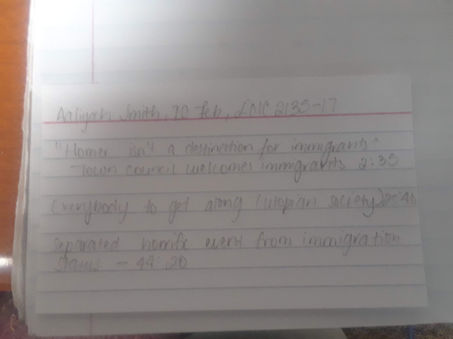 Aaliyah Smith, 10 Feb, 2135-17
"Homer isn't a destination for immigrants"
- Town council welcomes immigrants 2:35
(everybody to get along / utopian society) 2:40
Separated horrific event from immigration
status - 44:20